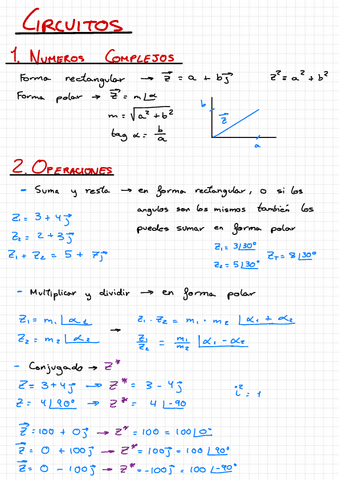 CIRCUITOS
1. NUMEROS COMPLEJOS
Forma rectangular → z⃗ = a + bj z² = a² + b²
Forma polar → z⃗ = m∠α
m = √(a² + b²)
tag α = b/a
b
z⃗
a
2. OPERACIONES
- Suma y resta → en forma rectangular, o si los
angulos son los mismos también los
puedes sumar en forma polar
Z₁ = 3 + 4j
Z₂ = 2 + 3j
Z₁ + Z₂ = 5 + 7j
Z₁ = 3∠30°
Z₂ = 5∠30°
Z_T = 8∠30°
- Multiplicar y dividir → en forma polar
Z₁ = m₁ ∠α₁ → Z₁ · Z₂ = m₁ · m₂ ∠α₁ + α₂
Z₂ = m₂ ∠α₂ Z₁/Z₂ = m₁/m₂ ∠α₁ - α₂
- Conjugado → Z*
Z = 3 + 4j → Z* = 3 - 4j
i² = 1
Z = 4∠90° → Z* = 4∠-90
Z⃗ = 100 + 0j → Z* = 100 = 100∠0°
Z⃗ = 0 + 100j → Z* = 100j = 100∠90°
Z⃗ = 0 - 100j → Z* = -100j = 100∠-90°